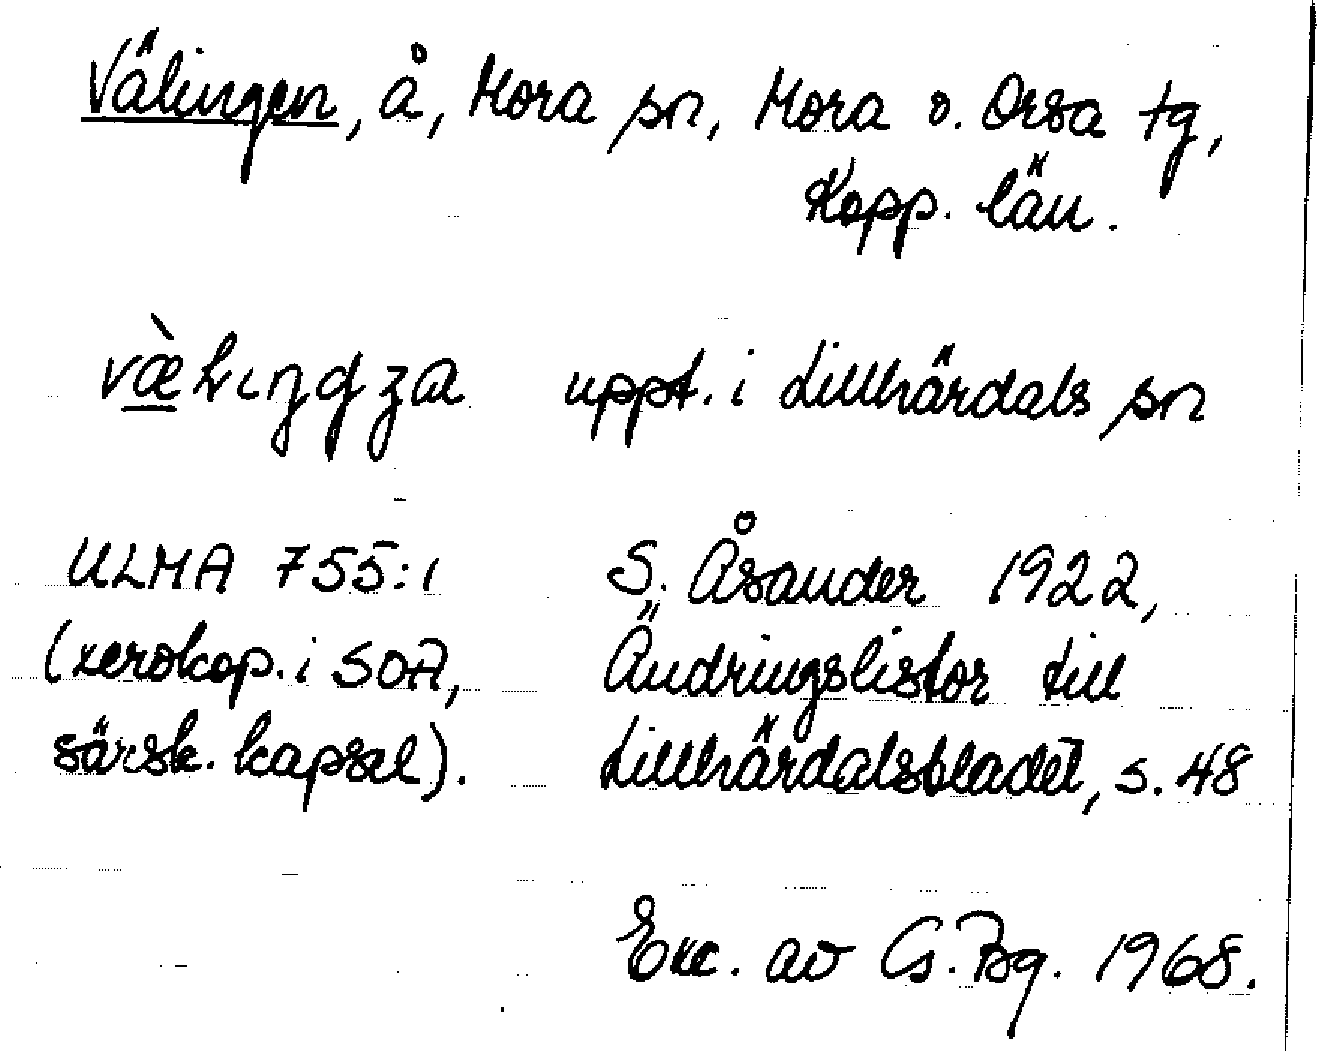 Välingen, å, Mora sn, Mora o. Orsa tg,
Kopp. län.
uppt. i Lillhärdals sn
ULMA 755:1 S. Åsander 1922,
(xerokop. i SOA, Ändringslistor till
särsk. kapsel). Lillhärdalsbladet, s. 48
Exc. av G. Bg. 1968.